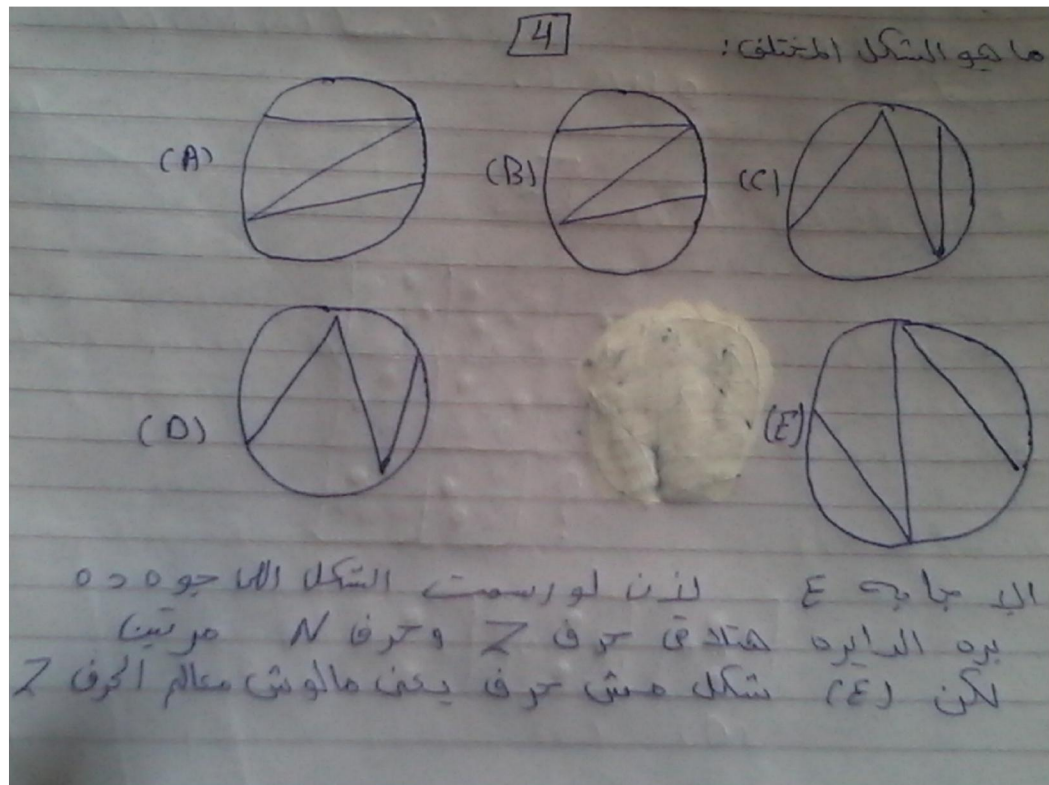 4
ما هو الشكل المختلف:
(A)
(B)
(C)
(D)
(E)
الإجابه E لأن لو رسمت الشكل اللى جوه ده
بره الدايره هتلاقى حرف Z وحرف N مرتين
لكن (E) شكل مش حرف يعنى مالوش معالم الحرف Z